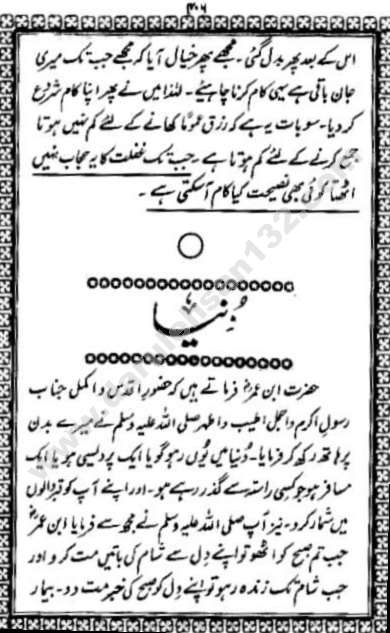 ۳۰۶
اس کے بعد پھر بدل گئی۔ مجھے پھر خیال آیا کہ مجھے جب تک میری
جان باقی ہے یہی کام کرنا چاہیئے۔ لہٰذا میں نے پھر اپنا کام شروع
کر دیا۔ سو بات یہ ہے کہ رزق عموماً کھانے کے لئے کم نہیں ہوتا
جمع کرنے کے لئے کم ہوتا ہے۔ جب تک غفلت کا یہ حجاب نہیں
اٹھتا کوئی بھی نصیحت کیا کام آ سکتی ہے۔
دُنیا
حضرت ابن عمرؓ فرماتے ہیں کہ حضورِ اقدس و اکمل جناب
رسول اکرم و اجمل اطیب و اطہر صلی اللہ علیہ وسلم نے میرے بدن
پر ہاتھ رکھ کر فرمایا۔ دُنیا میں یُوں رہو گویا ایک پردیسی ہو یا ایک
مسافر ہو جو کسی راستہ سے گذر رہے ہو۔ اور اپنے آپ کو قبر والوں
میں شمار کرو۔ نیز آپ صلی اللہ علیہ وسلم نے مجھ سے فرمایا ابن عمرؓ
جب تم صبح کو اٹھو تو اپنے دِل سے شام کی باتیں مت کرو اور
جب شام تک زندہ رہو تو اپنے دِل کو صبح کی خبر مت دو۔ بیمار